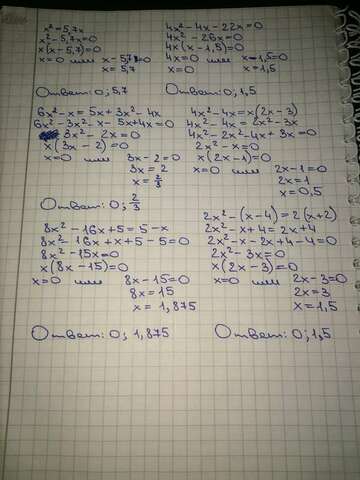 x² = 5,7x
x² - 5,7x = 0
x(x - 5,7) = 0
x = 0 или x - 5,7 = 0
x = 5,7
Ответ: 0; 5,7
4x² - 4x - 22x = 0
4x² - 26x = 0
4x(x - 1,5) = 0
4x = 0 или x - 1,5 = 0
x = 0 x = 1,5
Ответ: 0; 1,5
6x² - x = 5x + 3x² - 4x
6x² - 3x² - x - 5x + 4x = 0
3x² - 2x = 0
x(3x - 2) = 0
x = 0 или 3x - 2 = 0
3x = 2
x = 2/3
Ответ: 0; 2/3
4x² - 4x = x(2x - 3)
4x² - 4x = 2x² - 3x
4x² - 2x² - 4x + 3x = 0
2x² - x = 0
x(2x - 1) = 0
x = 0 или 2x - 1 = 0
2x = 1
x = 0,5
8x² - 16x + 5 = 5 - x
8x² - 16x + x + 5 - 5 = 0
8x² - 15x = 0
x(8x - 15) = 0
x = 0 или 8x - 15 = 0
8x = 15
x = 1,875
Ответ: 0; 1,875
2x² - (x - 4) = 2(x + 2)
2x² - x + 4 = 2x + 4
2x² - x - 2x + 4 - 4 = 0
2x² - 3x = 0
x(2x - 3) = 0
x = 0 или 2x - 3 = 0
2x = 3
x = 1,5
Ответ: 0; 1,5